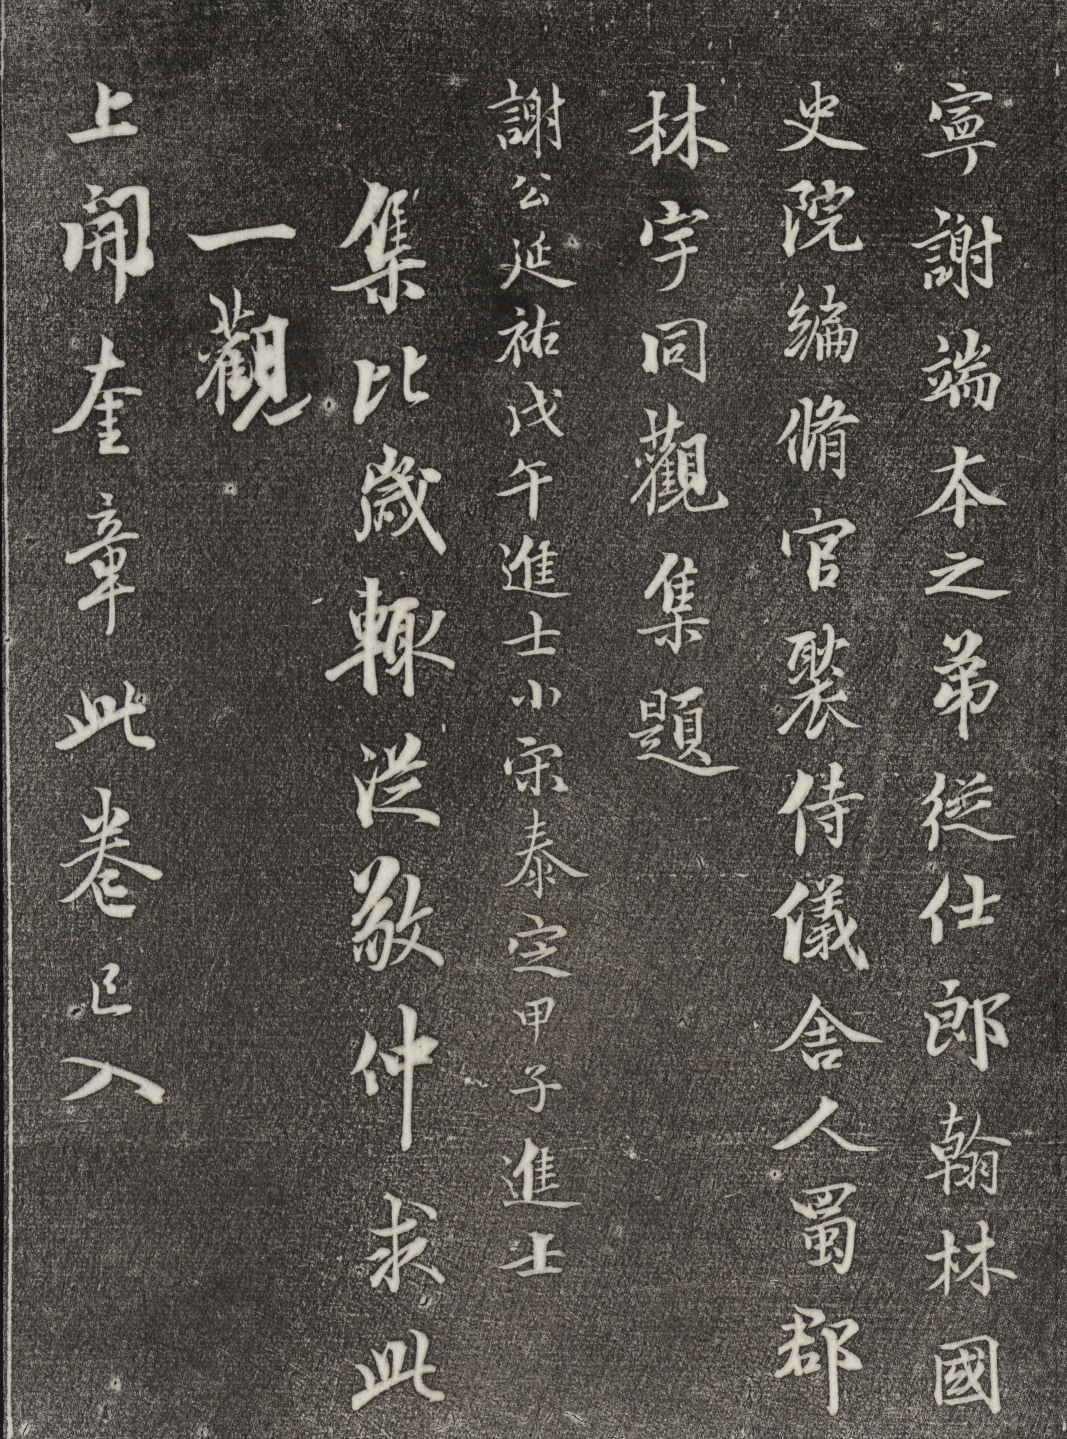 寧謝端本之弟從仕郎翰林國
史院編脩官裴侍儀舍人蜀郡
林宇同觀集題
謝公延祐戊午進士小宋泰定甲子進士
集比歲輙從敬仲求此
一觀
上開奎章此卷已入